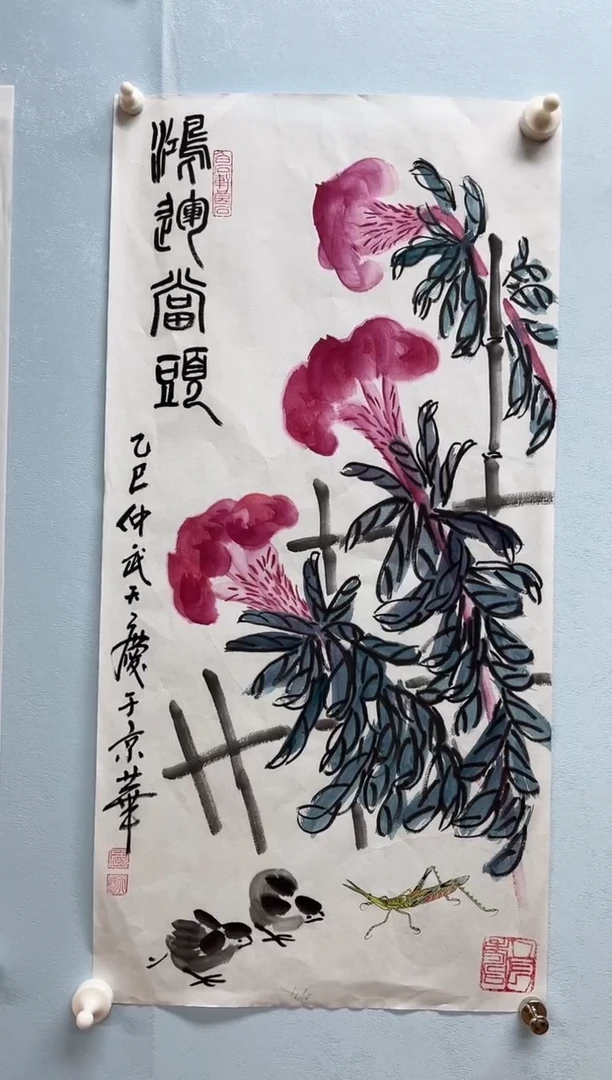 鴻運當頭
乙巳仲武天慶于京華